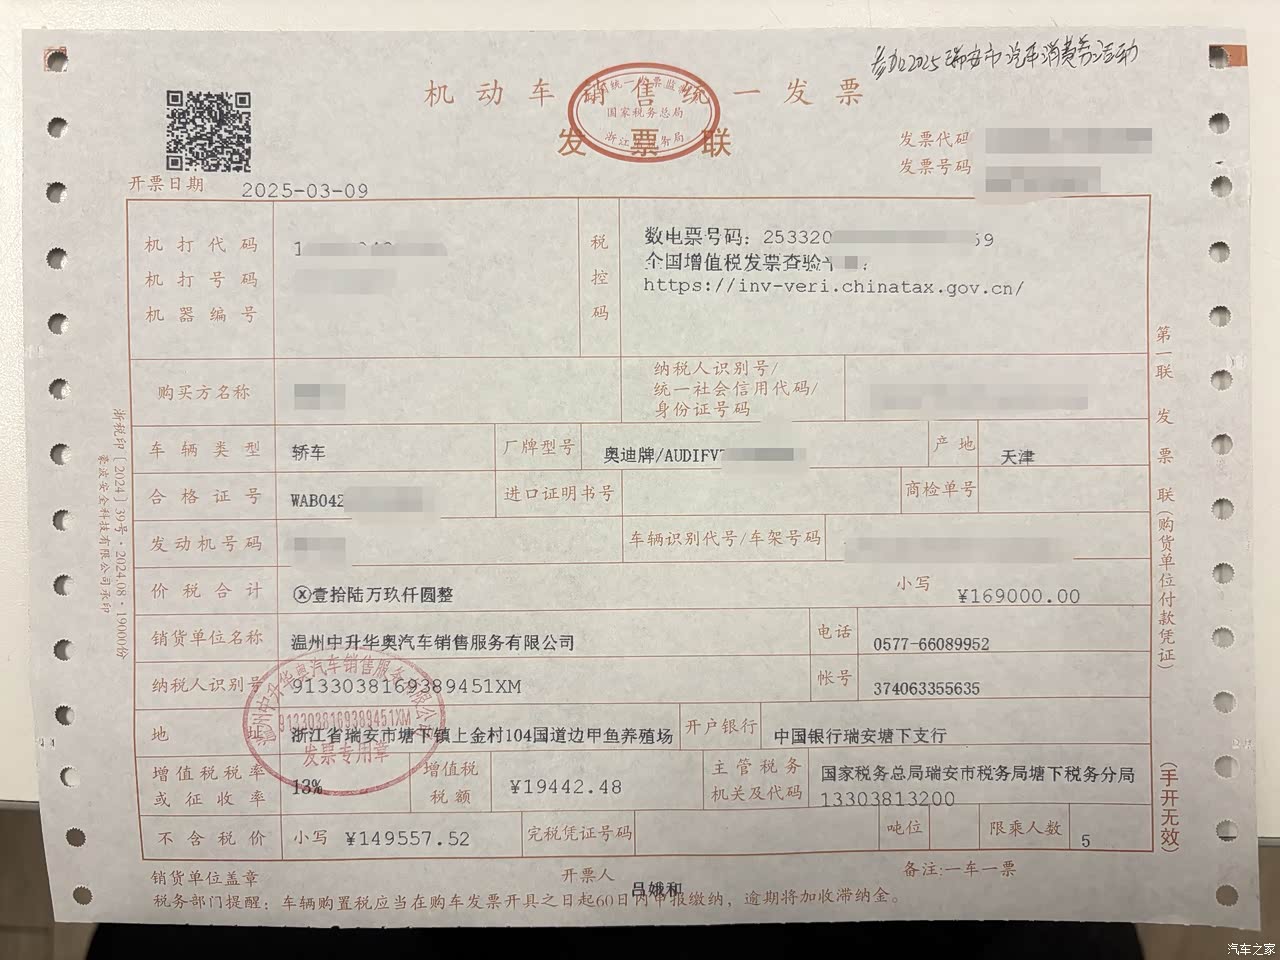 参加2025瑞安市汽车消费券活动
机动车销售统一发票
国家税务总局
发票联
发票代码
发票号码
开票日期 2025-03-09
机打代码
机打号码
机器编号
税控码
数电票号码：253320 59
全国增值税发票查验
https://inv-veri.chinatax.gov.cn/
购买方名称
纳税人识别号/
统一社会信用代码/
身份证号码
车辆类型 轿车 厂牌型号 奥迪牌/AUDIFV 产地 天津
合格证号 WAB042 进口证明书号 商检单号
发动机号码 车辆识别代号/车架号码
价税合计 ⓧ壹拾陆万玖仟圆整 小写 ¥169000.00
销货单位名称 温州中升华奥汽车销售服务有限公司 电话 0577-66089952
纳税人识别号 9133038169389451XM 帐号 374063355635
地 浙江省瑞安市塘下镇上金村104国道边甲鱼养殖场 开户银行 中国银行瑞安塘下支行
增值税税率
或征收率
13%
增值税
税额
¥19442.48
主管税务
机关及代码
国家税务总局瑞安市税务局塘下税务分局
13303813200
不含税价 小写 ¥149557.52 完税凭证号码 吨位 限乘人数 5
销货单位盖章 开票人 吕娥和 备注:一车一票
税务部门提醒：车辆购置税应当在购车发票开具之日起60日内申报缴纳，逾期将加收滞纳金。
温州中升华奥汽车销售服务有限公司
9133038169389451XM
发票专用章
第一联 发票联（购货单位付款凭证）
（手开无效）
浙税印［2024］39号·2024.08·19000份
汽车之家